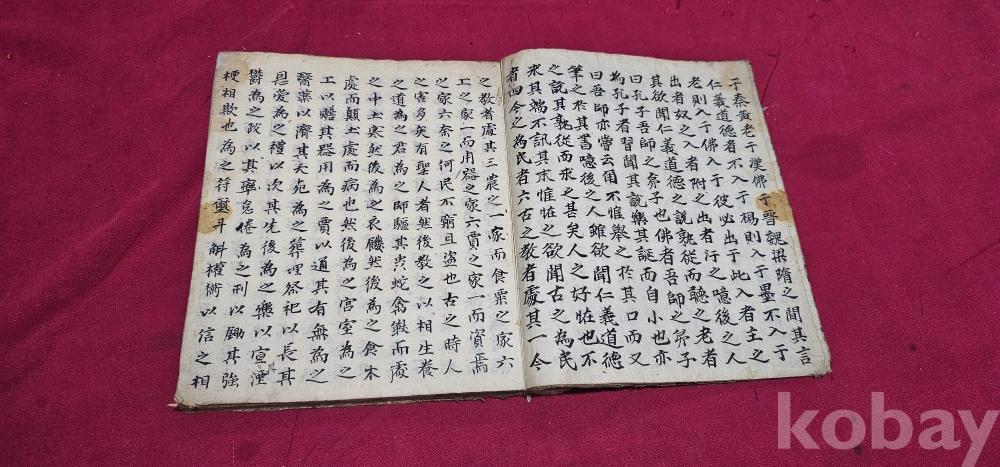 于秦黃老于漢佛于晉魏梁隋之間其言
仁義道德者不入于楊則入于墨不入于
老則入于佛入于彼必出于此入者主之
出者奴之入者附之出者汙之噫後之人
其欲聞仁義道德之說孰從而聽之老者
曰孔子吾師之弟子也佛者吾師之弟子
為孔子者習聞其說樂其誕而自小也亦
曰吾師亦嘗云爾不惟舉之於其口而又
筆之於其書噫後之人雖欲聞仁義道德
之說其孰從而求之甚矣人之好怪也不
求其端不訊其末惟怪之欲聞古之為民
者四今之為民者六古之教者處其一今
之教者處其三農之一家而食粟之家六
工之家一而用器之家六賈之家一而資焉
之家六奈之何民不窮且盜也古之時人
之害多矣有聖人者然後教之以相生養
之道為之君為之師驅其虫蛇禽獸而處
之中土寒然後為之衣饑然後為之食木
處而顛土處而病也然後為之宮室為之
工以贍其器用為之賈以通其有無為之
醫藥以濟其夭死為之葬埋祭祀以長其
恩愛為之禮以次其先後為之樂以宣其湮
鬱為之政以其率怠倦為之刑以鋤其強
梗相欺也為之符璽斗斛權衡以信之相
kobay